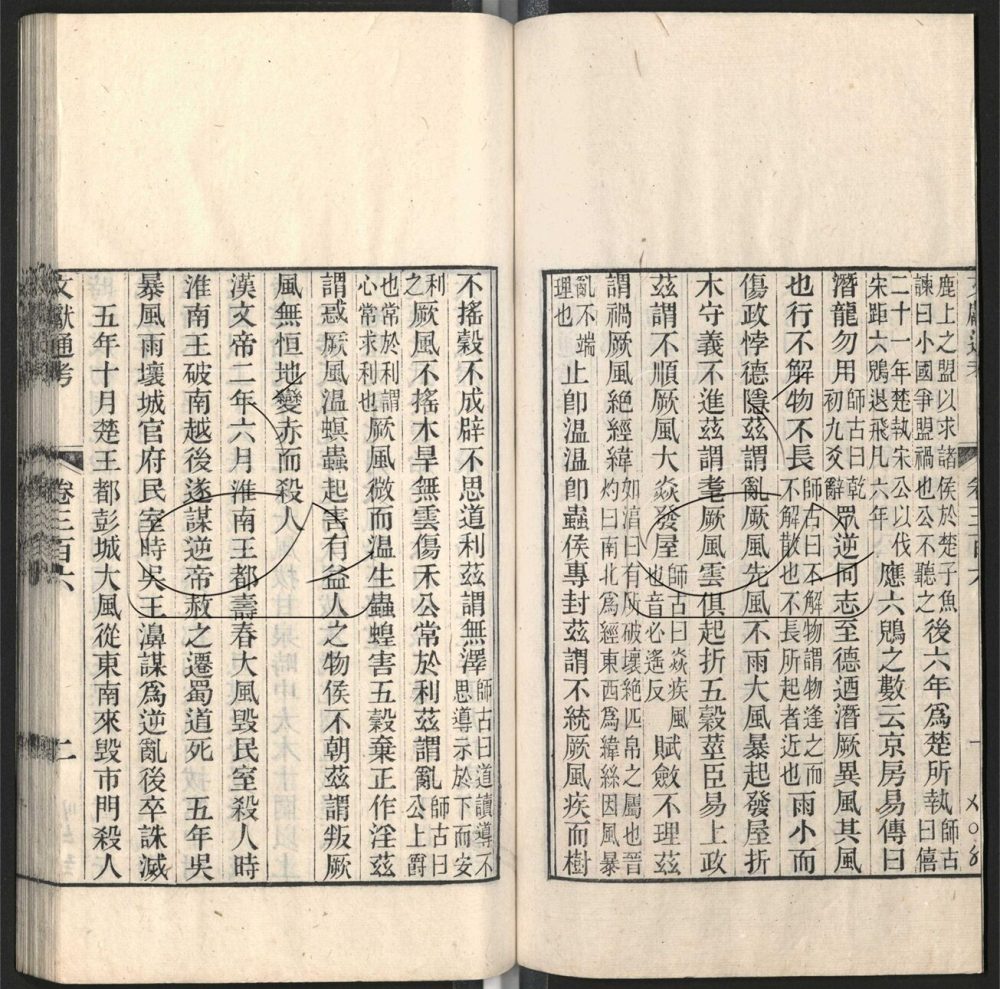 鹿上之盟以求諸侯於楚子魚
諫曰小國爭盟禍也公不聽之後六年爲楚所執師古曰僖
二十一年楚執宋公以伐
宋距六鶂退飛凡六年應六鶂之數云京房易傳曰
潛龍勿用師古曰乾初九爻辭衆逆同志至德迺潛厥異風其風
也行不解物不長師古曰不解物謂物逢之而不解散也不長所起者近也雨小而
傷政悖德隱茲謂亂厥風先風不雨大風暴起發屋折
木守義不進茲謂耄厥風雲俱起折五穀莖臣易上政
茲謂不順厥風大焱發屋師古曰焱疾風也音必遙反賦斂不理茲
謂禍厥風絶經緯如湻曰有所破壞絶匹帛之屬也晉灼曰南北爲經東西爲緯絲因風暴
亂不端理也止卽温温卽蟲侯專封茲謂不統厥風疾而樹
不搖穀不成辟不思道利茲謂無澤師古曰道讀導不思導示於下而安
利之厥風不搖木旱無雲傷禾公常於利茲謂亂師古曰公上爵
也常於利謂心常求利也厥風微而温生蟲蝗害五穀棄正作淫茲
謂惑厥風温螟蟲起害有益人之物侯不朝茲謂叛厥
風無恒地變赤而殺人
漢文帝二年六月淮南王都壽春大風毁民室殺人時
淮南王破南越後遂謀逆帝赦之遷蜀道死 五年吳
暴風雨壞城官府民室時吳王濞謀爲逆亂後卒誅滅
五年十月楚王都彭城大風從東南來毁市門殺人
文獻通考 卷三百六 二